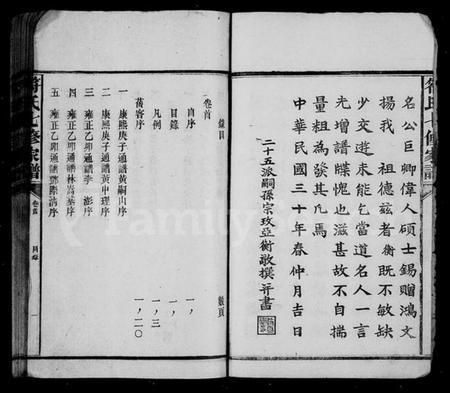 名公巨卿偉人碩士錫贈鴻文
揚我 祖德茲者衡既不敏缺
少交遊未能乞當道名人一言
光增譜牒愧也滋甚故不自揣
量粗為發其凡焉
二十五派嗣孫宗玫亞衡敬撰并書
中華民國三十年春仲月吉日
符氏七修家譜
總目 總頁
卷首
自序 一ノ
目錄 一ノ
凡例 一ノ三
舊客序 一ノ二〇
一 康熙庚子通譜黃嗣山序
二 康熙庚子通譜黃中理序
三 雍正乙卯通譜李澎序
四 雍正乙卯通譜林嵩基序
五 雍正乙卯通譜鄧獻清序
符氏七修家譜
卷首
目錄
一
FamilySearch